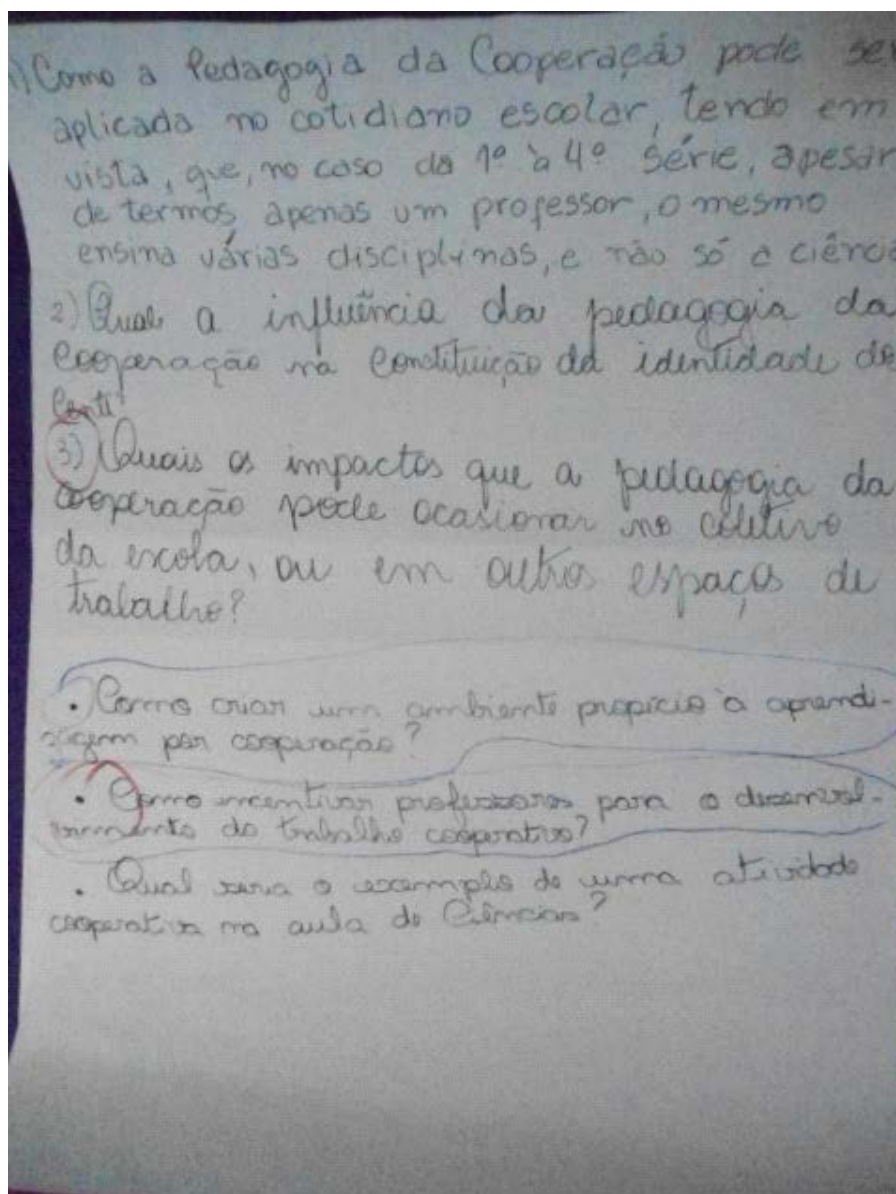 1) Como a Pedagogia da Cooperação pode se
aplicada no cotidiano escolar, tendo em
vista, que, no caso da 1º à 4º série, apesar
de termos apenas um professor, o mesmo
ensina várias disciplinas, e não só a ciência
2) Qual a influência da pedagogia da
cooperação na constituição da identidade do
3) Quais os impactos que a pedagogia da
cooperação pode ocasionar no coletivo
da escola, ou em outros espaços de
trabalho?
. Como criar um ambiente propício à aprendi-
zagem por cooperação?
. Como incentivar professores para o desenvol-
vimento do trabalho cooperativo?
. Qual seria o exemplo de uma atividade
cooperativa na aula de Ciências?